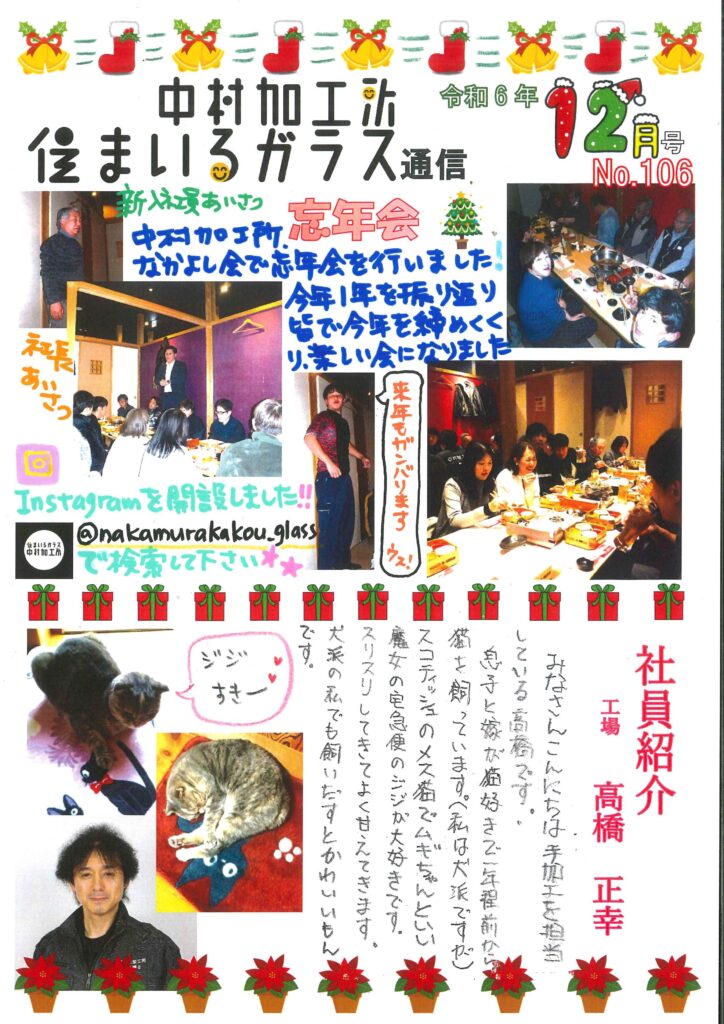 中村加工所
住まいるガラス通信
令和6年
12月号
No.106
新入社員あいさつ
忘年会
中村加工所、
なかよし会で忘年会を行いました!
今年1年を振り返り
皆で今年を締めくく
り、楽しい会になりました
社長
あいさつ
来年もガンバります
ウス!
Instagramを開設しました!!
住まいるガラス
中村加工所
@nakamurakakou_glass
で検索して下さい
社員紹介
工場 高橋 正幸
みなさんこんにちは 手加工を担当
している高橋です。
息子と嫁が猫好きで一年程前から
猫を飼っています。(私は犬派ですが)
スコティッシュのメス猫でムギちゃんといい
魔女の宅急便のジジが大好きです。
スリスリしてきてよく甘えてきます。
犬派の私でも飼いだすとかわいいもん
です。
ジジ
すきー